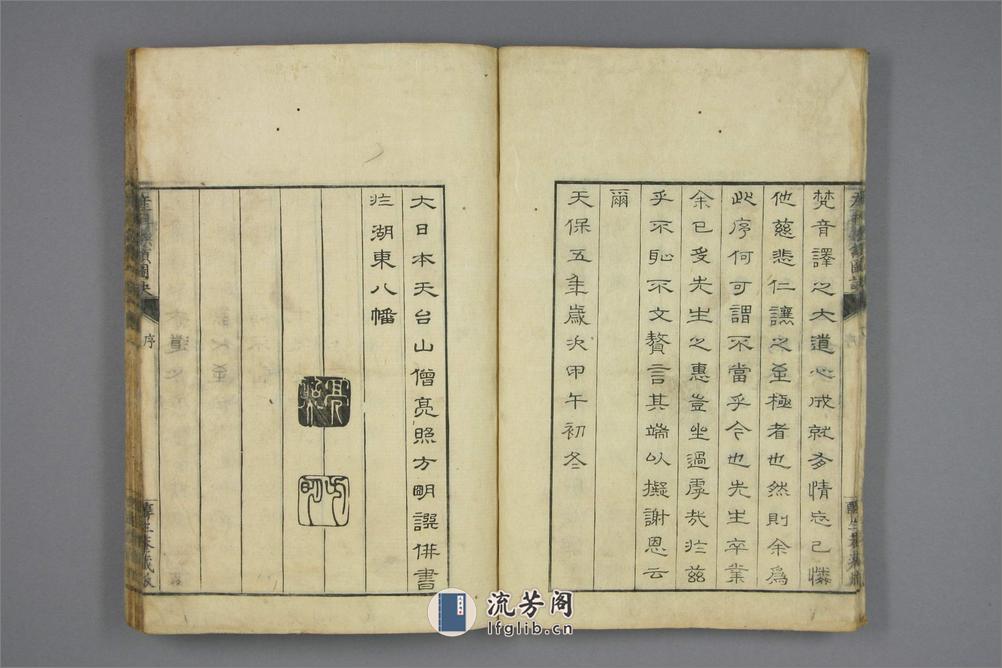 梵音譯之大道心成就多情忘己憐
他慈悲仁讓之至極者也然則余為
此序何可謂不當乎今也先生卒業
余已受先生之惠豈坐過虖哉於茲
乎不恥不文贅言其端以擬謝恩云
爾
天保五年歲次甲午初冬
大日本天台山僧亮照方明譔併書
於湖東八幡
序
流芳阁
lfglib.cn